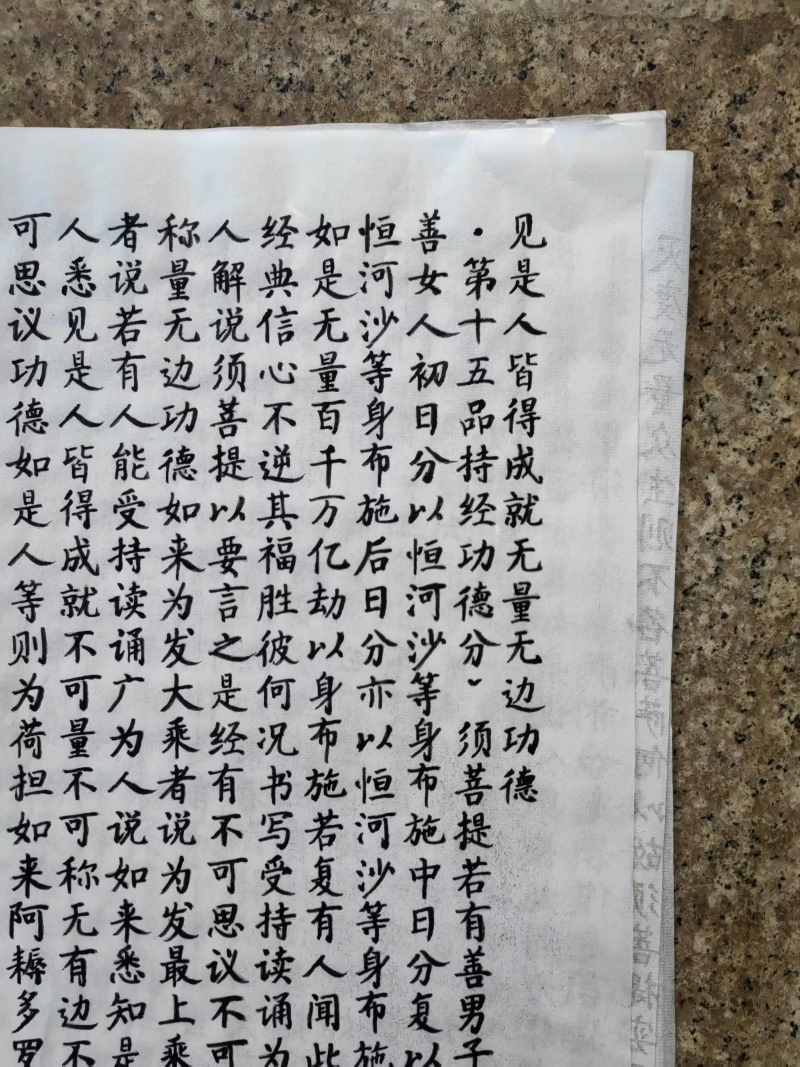 见是人皆得成就无量无边功德
·第十五品持经功德分、须菩提若有善男子
善女人初日分以恒河沙等身布施中日分复以
恒河沙等身布施后日分亦以恒河沙等身布施
如是无量百千万亿劫以身布施若复有人闻此
经典信心不逆其福胜彼何况书写受持读诵为
人解说须菩提以要言之是经有不可思议不可
称量无边功德如来为发大乘者说为发最上乘
者说若有人能受持读诵广为人说如来悉知是
人悉见是人皆得成就不可量不可称无有边不
可思议功德如是人等则为荷担如来阿耨多罗